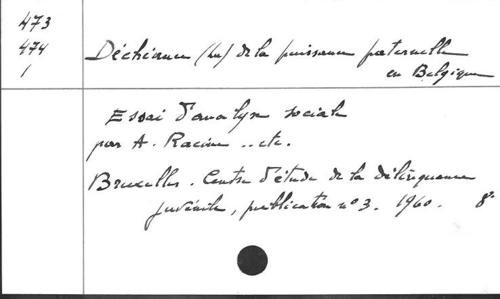 473
474
1
Déchéance (La) de la puissance paternelle
en Belgique
Essai d'analyse sociale
par A. Racine .. etc.
Bruxelles. Centre d'étude de la délinquance
juvénile, publication n° 3. 1960. 8°